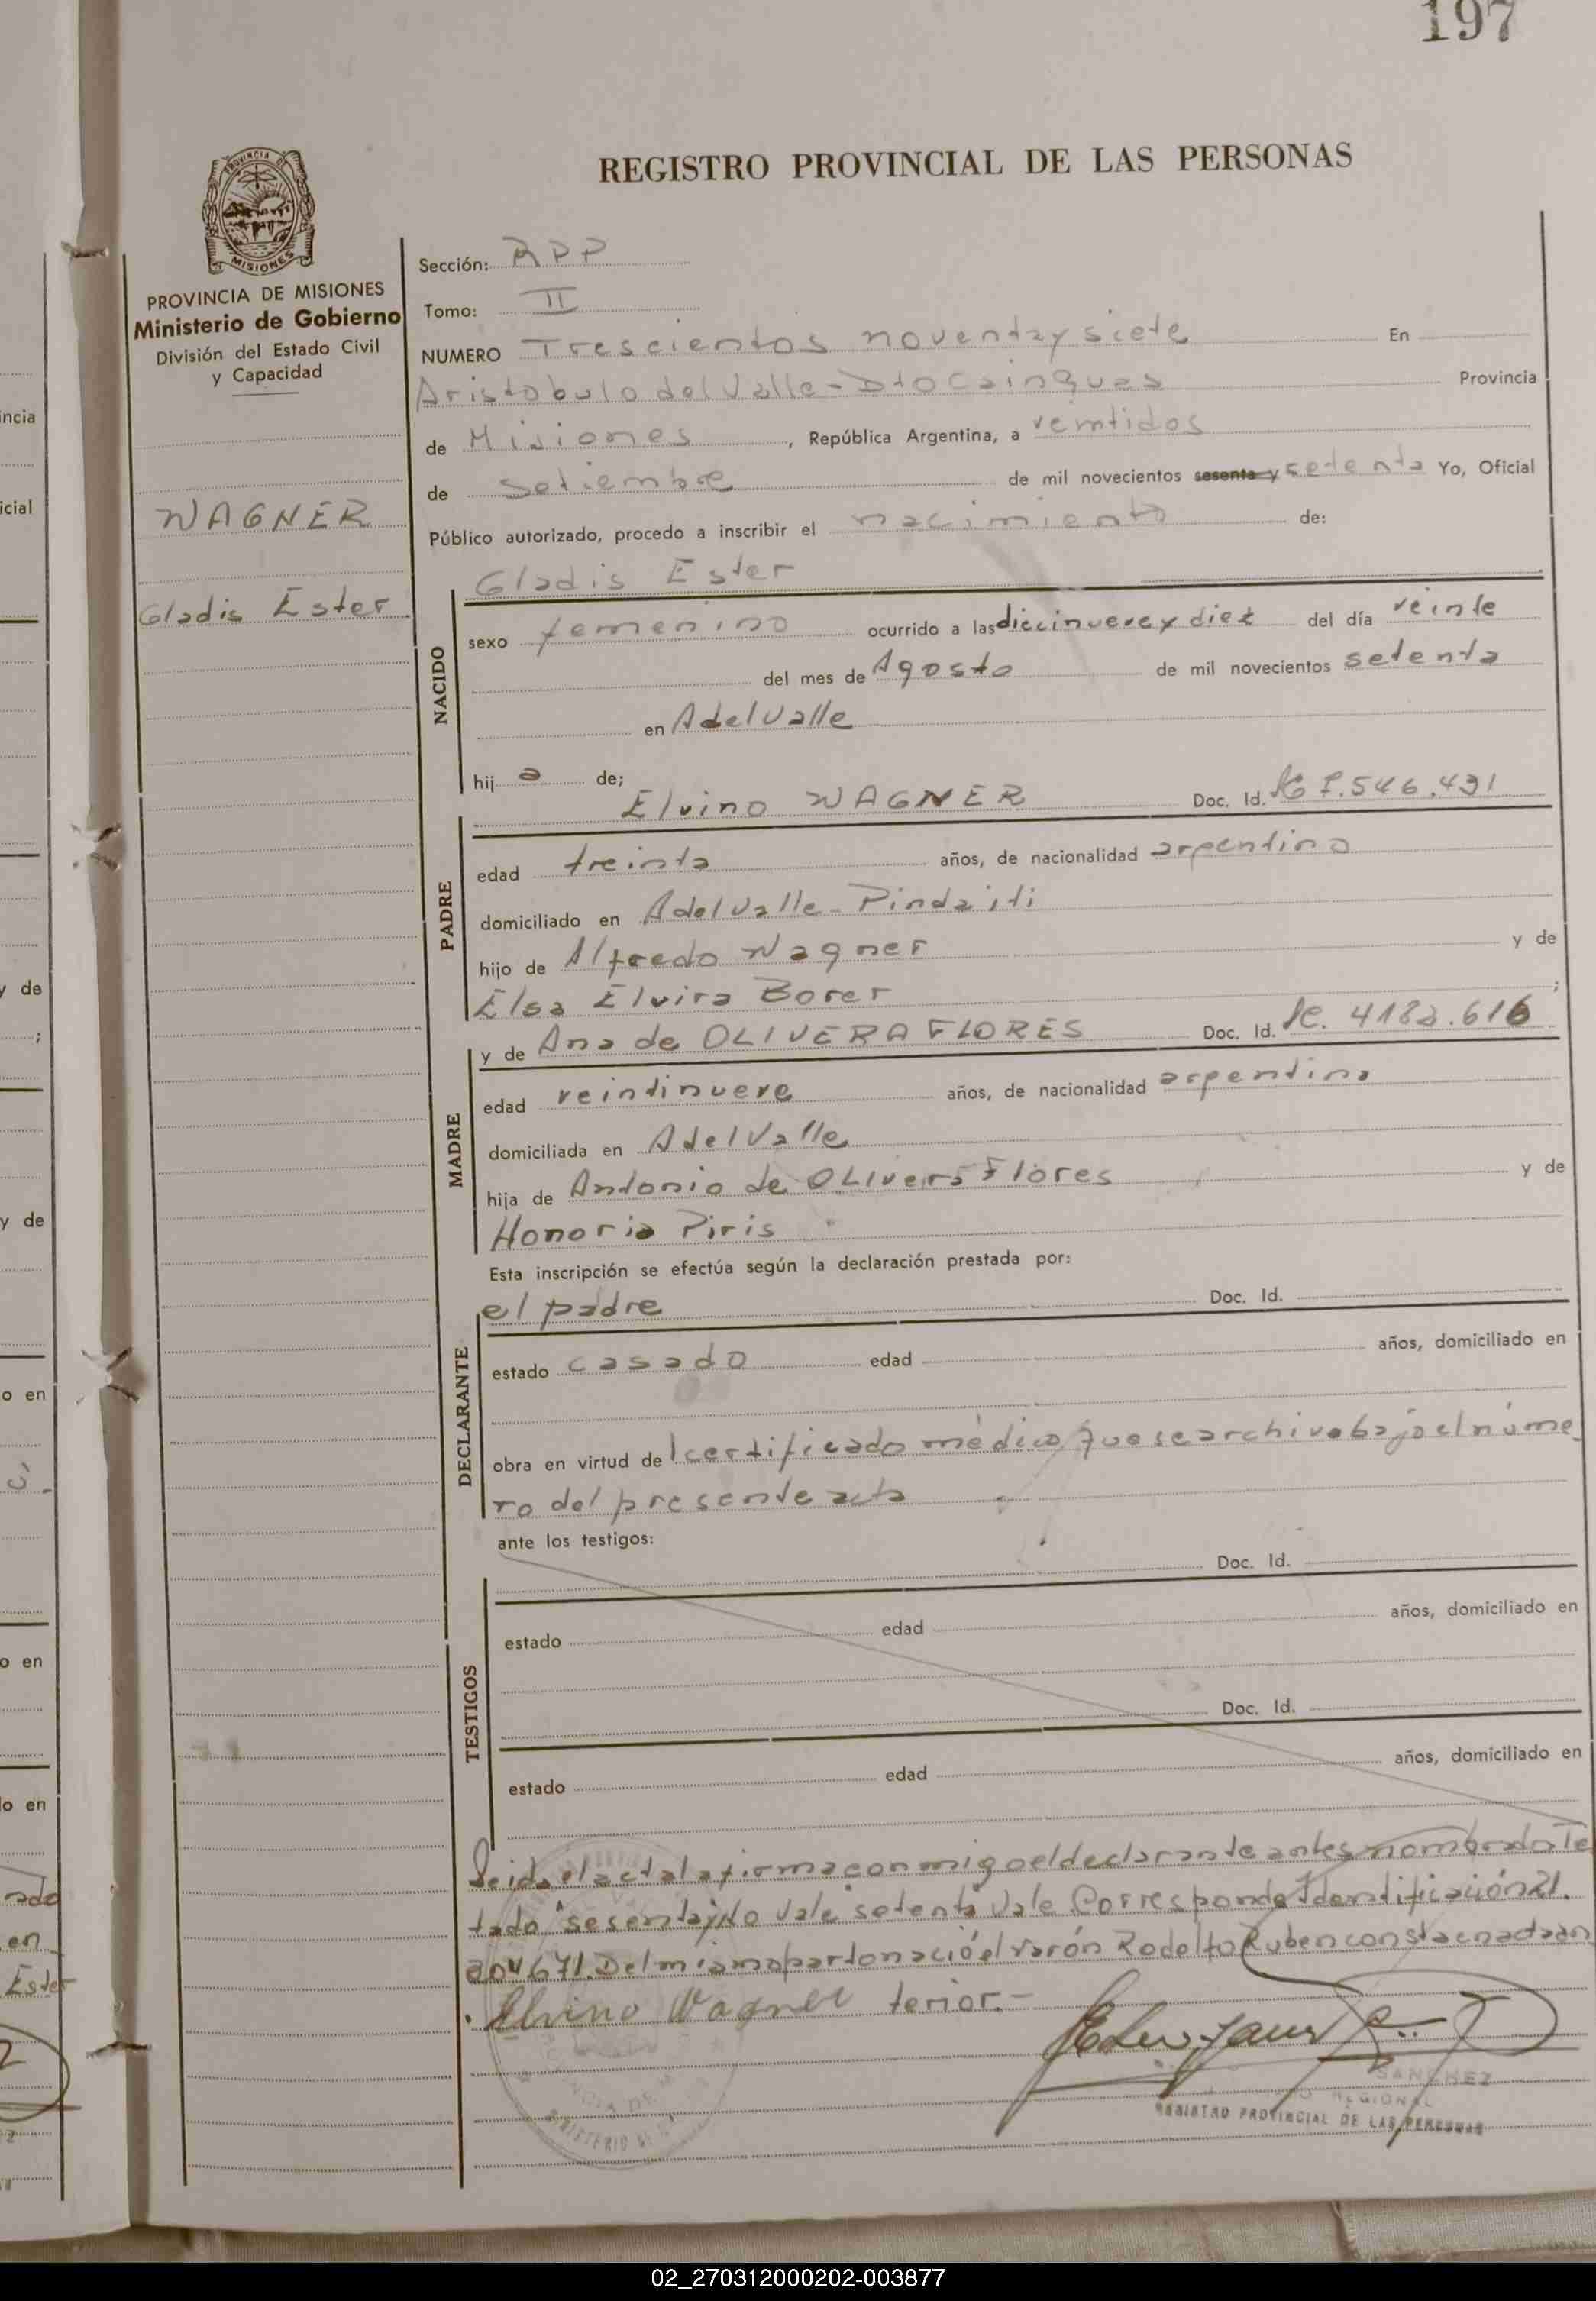 197
REGISTRO PROVINCIAL DE LAS PERSONAS
PROVINCIA DE MISIONES
MISIONES
PROVINCIA DE MISIONES
Ministerio de Gobierno
División del Estado Civil
y Capacidad
WAGNER
Gladis Ester
Sección: RPP
Tomo: II
NUMERO Trescientos noventa y siete En
Aristobulo del Valle - Dto Cainguas Provincia
de Misiones, República Argentina, a veintidos
de Setiembre de mil novecientos sesenta y setenta Yo, Oficial
Público autorizado, procedo a inscribir el nacimiento de:
Gladis Ester
NACIDO
sexo femenino ocurrido a las diecinueve y diez del día veinte
del mes de Agosto de mil novecientos setenta
en A del Valle
hij a de;
Elvino WAGNER Doc. Id. 7.546.431
PADRE
edad treinta años, de nacionalidad argentina
domiciliado en A del Valle - Pindaiti
hijo de Alfredo Wagner y de
Elsa Elvira Borer ;
y de Ana de OLIVERA FLORES Doc. Id. lc. 4182.616
MADRE
edad veintinueve años, de nacionalidad argentina
domiciliada en A del Valle
hija de Antonio de OLivera Flores y de
Honoria Piris
Esta inscripción se efectúa según la declaración prestada por:
el padre Doc. Id.
DECLARANTE
estado casado edad años, domiciliado en
obra en virtud de l certificado médico que se archiva bajo el núme
ro del presente acta
ante los testigos:
Doc. Id.
TESTIGOS
estado edad años, domiciliado en
Doc. Id.
estado edad años, domiciliado en
Leida el acta la firma conmigo el declarante antes nombrado Te
tado "sesenta y" No Vale "setenta" Vale Corresponde Identificación 21.
204671. Del mismo parto nació el varón Rodolfo Ruben consta en acta an
terior.-
Elvino Wagner
SANCHEZ
REGIONAL
REGISTRO PROVINCIAL DE LAS PERSONAS
02_270312000202-003877